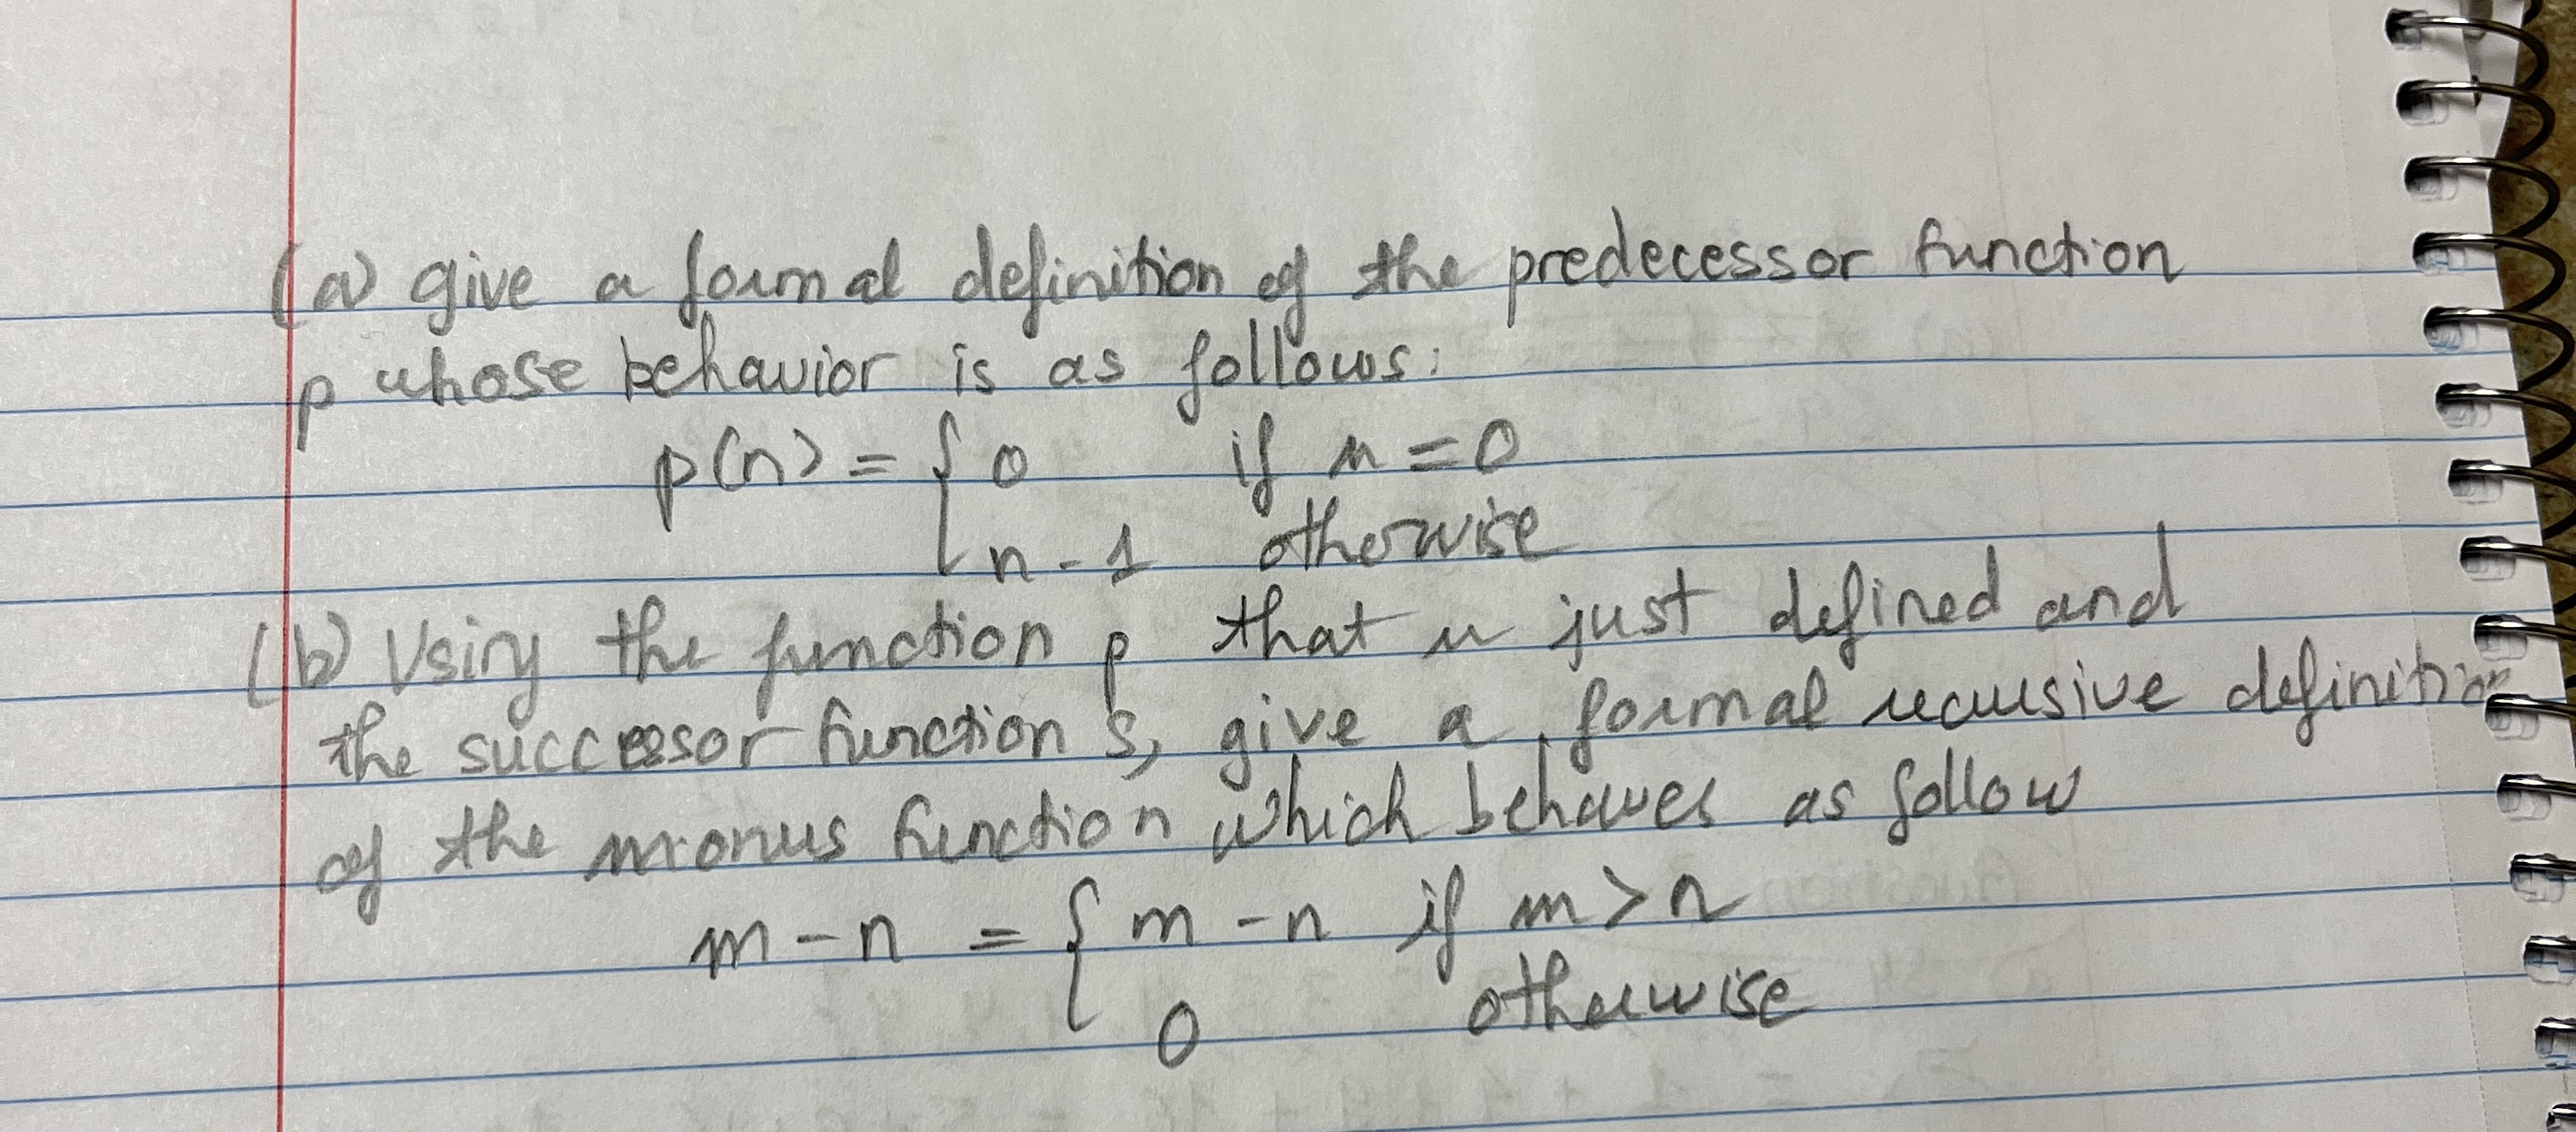 (a) give a formal definition of the predecessor function
p whose behavior is as follows:
p(n) = { 0 if n = 0
n - 1 otherwise
(b) Using the function p that u just defined and
the successor function s, give a formal recursive definition
of the monus function which behaves as follow
m - n = { m - n if m > n
0 otherwise